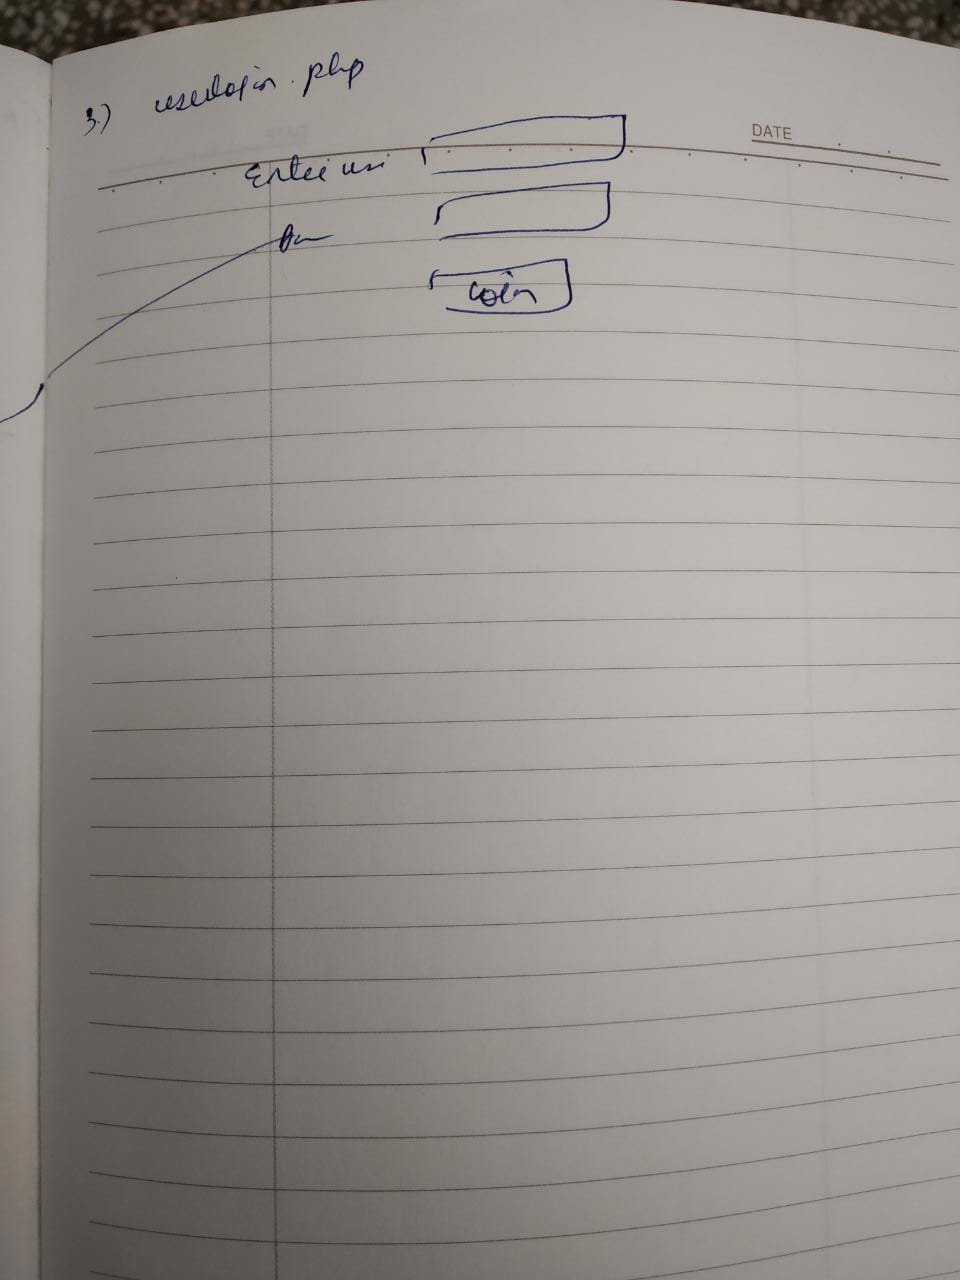 3.) userlogin.php
DATE
Enter us
login